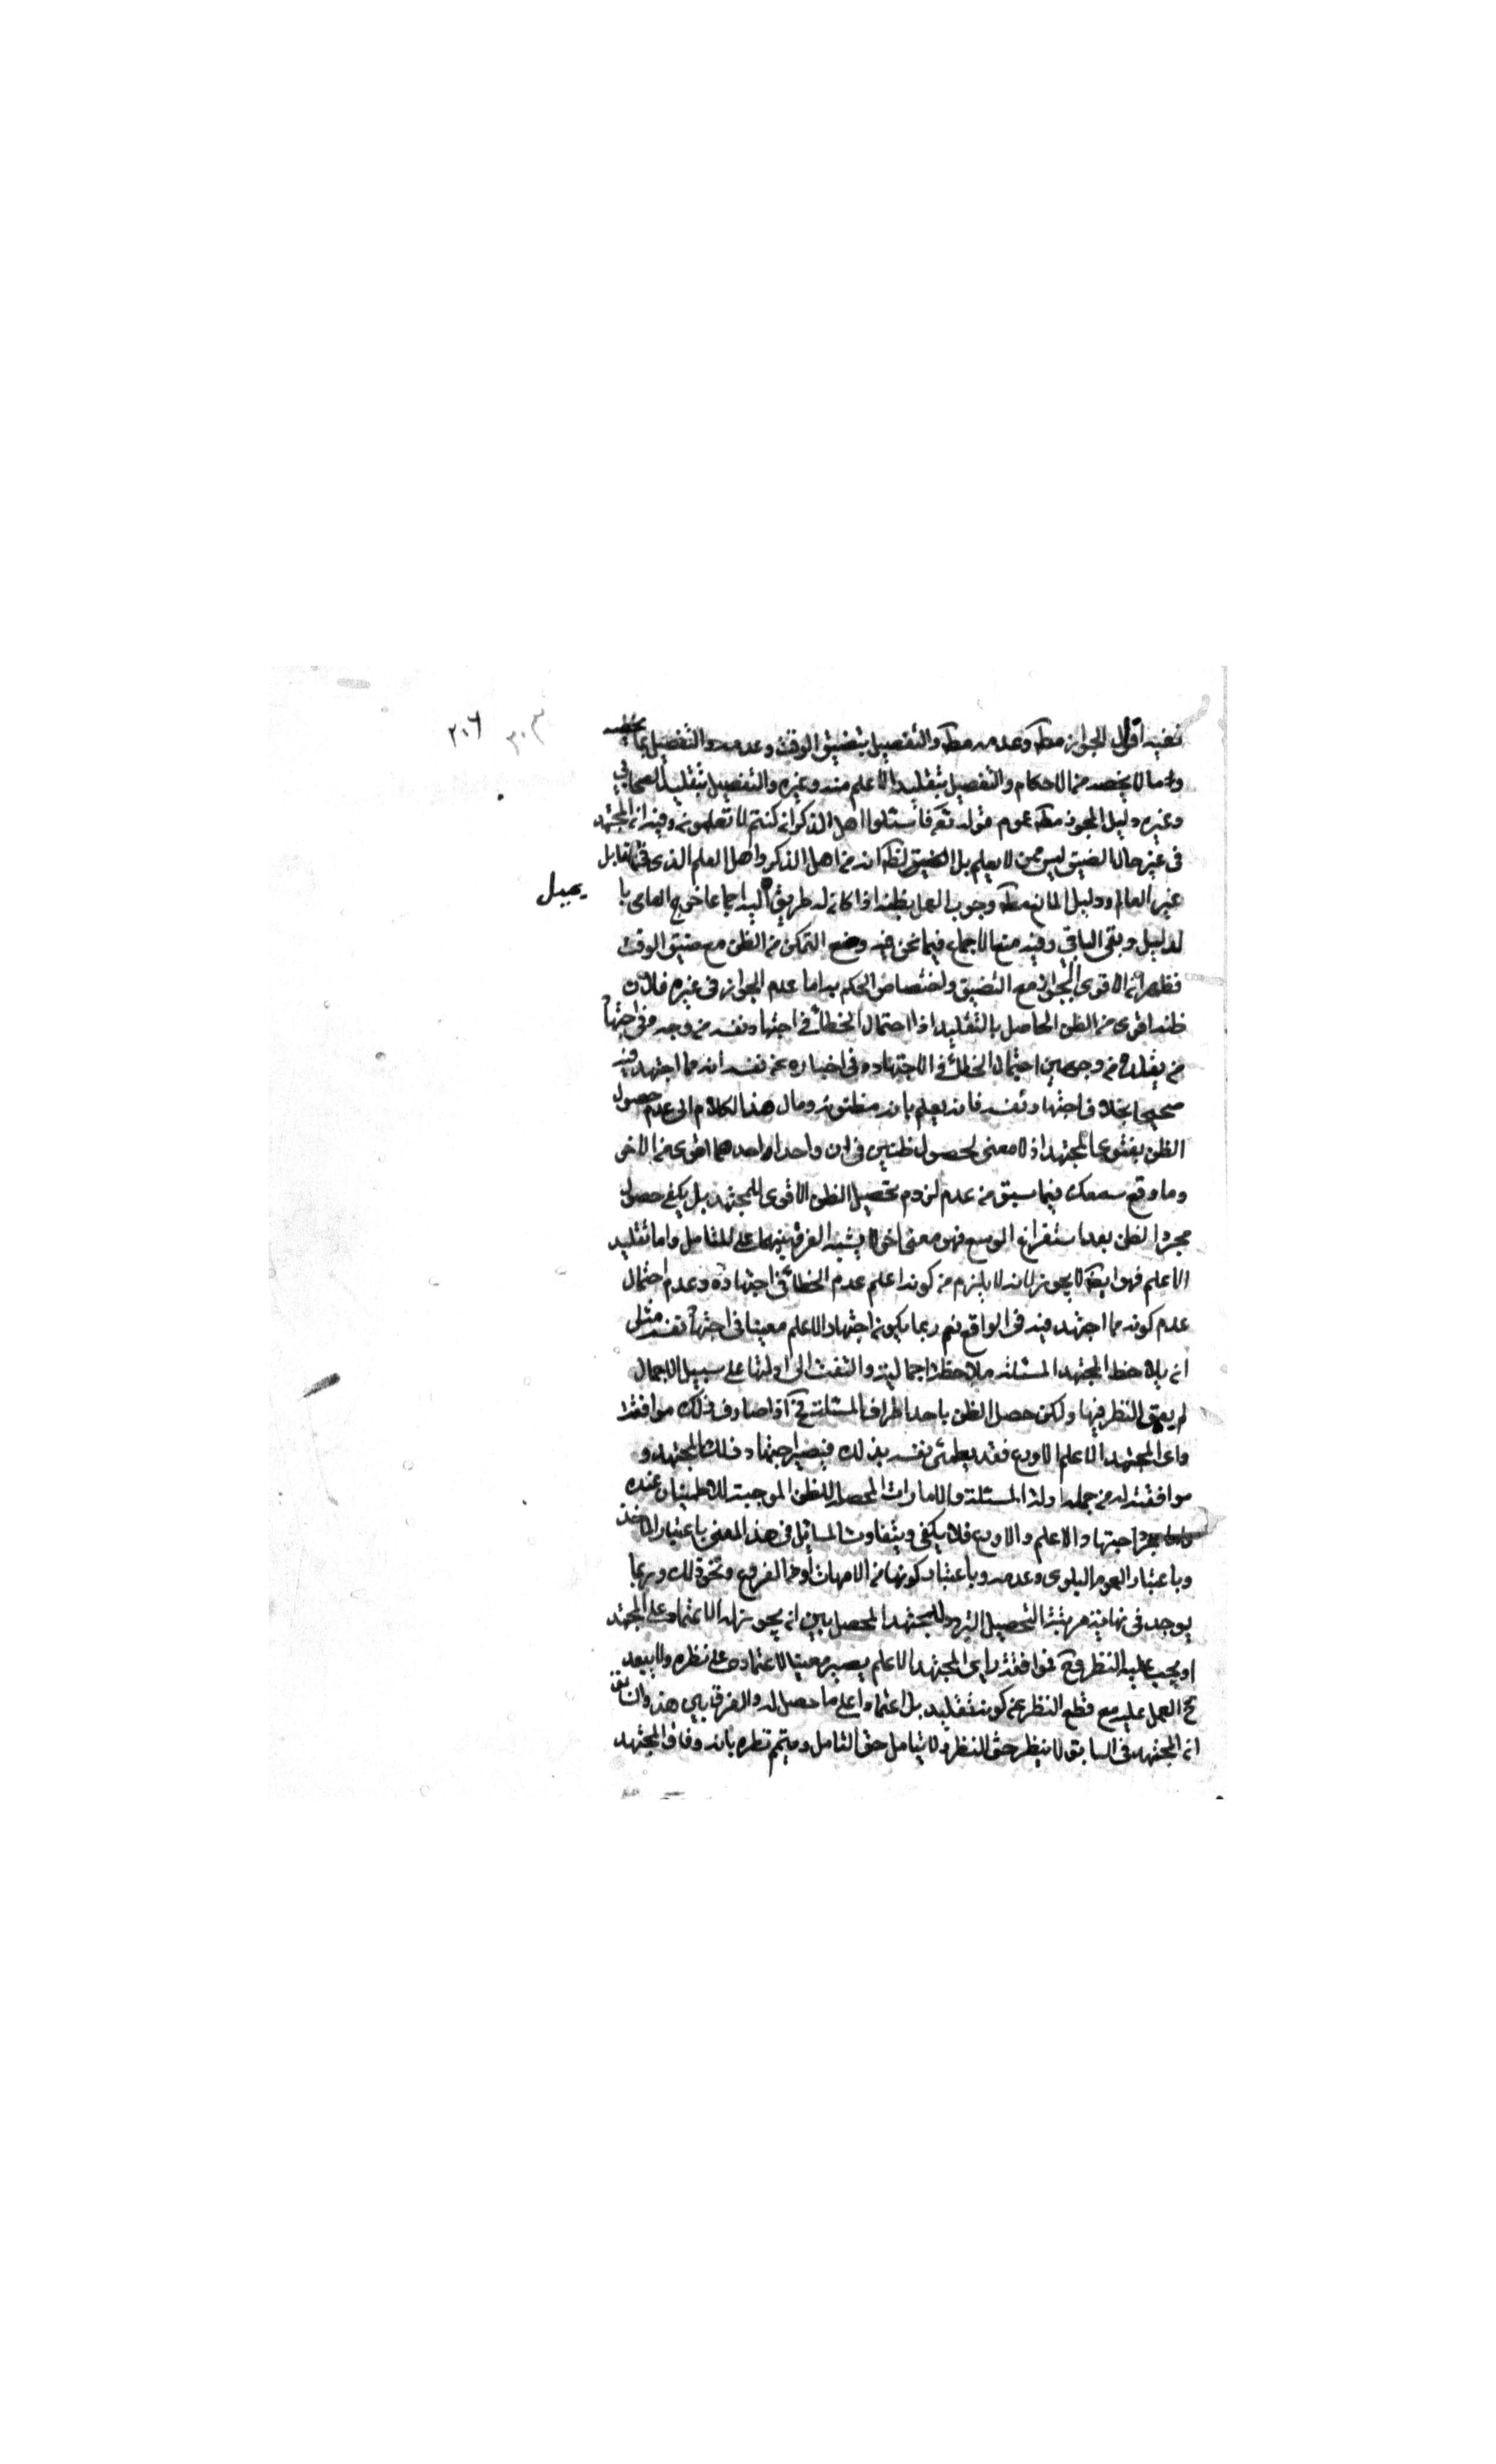 ٢٠٦ ٣٠٣
ففيه اقوال الجواز مطة وعدمه مطة والتفصيل بتضيق الوقت وعدمه والتفصيل بما يخصه
وبما لا يخصه من الاحكام والتفصيل بتقليد الاعلم منه وغيره والتفصيل بتقليد الصحابي
وغيره دليل المجوز مطة عموم قوله تعه فاسئلوا اهل الذكر ان كنتم لا تعلمون وفيه ان المجتهد
فى غير حال الضيق ليس ممن لا يعلم بل الضيق لظه انه من اهل الذكر واهل العلم الذى فى مقابل
غير العالم ودليل المانع مطة وجوب العمل بظنه اذا كان له طريق اليه اجماعا خرج العامى با
يميل
لدليل وبقى الباقى وفيه منع الاجماع فيما نحن فيه ومنع التمكن من الظن مع ضيق الوقت
فظهر ان الاقوى الجواز مع التضيق واختصاص الحكم به اما عدم الجواز فى غيره فلان
ظنه اقوى من الظن الحاصل بالتقليد اذ احتمال الخطائ فى اجتهاد نفسه من وجه وفى اجتها
من يقلده من وجهين احتمال الخطائ فى الاجتهاد وفى اخباره عن نفسه انه مما اجتهد فيه
صحيحا بخلاف اجتهاد نفسه فانه يعلم بانه مظنونه ومال هذا الكلام الى عدم حصول
الظن بفتوى المجتهد اذ لا معنى لحصول ظنين فى ان واحد احدهما اقوى من الاخر
وما وقع سمعك فيما سبق من عدم لزوم تحصيل الظن الاقوى للمجتهد بل يكفى حصول
مجرد الظن بعد استفراغ الوسع فهو معنى اخر لا يشتبه الفرق بينهما على المتامل واما تقليد
الاعلم فهو ايضه لا يجوز لانه لا يلزم من كونه اعلم عدم الخطائ فى اجتهاده وعدم احتمال
عدم كونه مما اجتهد فيه فى الواقع نعم ربما يكون اجتهاد الاعلم معينا فى اجتهاد نفسه مثلى
ان يلاحظ المجتهد المسئلة ملاحظة اجمالية والتفت الى ادلتها على سبيل الاجمال
لم يعمق النظر فيها ولكن حصل الظن باحد اطراف المسئلة فح اذا صادف ذلك موافقة
راى المجتهد الاعلم الاورع فقد يطمئن نفسه بذلك فيصير اجتهاد ذلك المجتهد و
موافقته له من جملة ادلة المسئلة والامارات المحصلة للظن الموجبة للاطمينان عنده
واما مجرد اجتهاد الاعلم والاورع فلا يكفى ويتفاوت المسائل فى هذا المعنى باعتبار الماخذ
وباعتبار العموم البلوى وعدمه وباعتبار كونها من الامهات او من الفروع ونحو ذلك وربما
يوجد فى نهاية مرتبة التحصيل التردد للمجتهد المحصل بين ان يجوز له الاعتماد على المجتهد
او يجب عليه النظر فح فموافقة راى المجتهد الاعلم يصير معينا لاعتماده على نظره ولا يبعد
ح العمل عليه مع قطع النظر عن كونه تقليد بل اعتمادا على ما حصل له والفرق بين هذه والسابق
ان المجتهد فى السابق لا ينظر حق النظر ولا يتامل حق التامل ويتم نظره بانه وفاق المجتهد